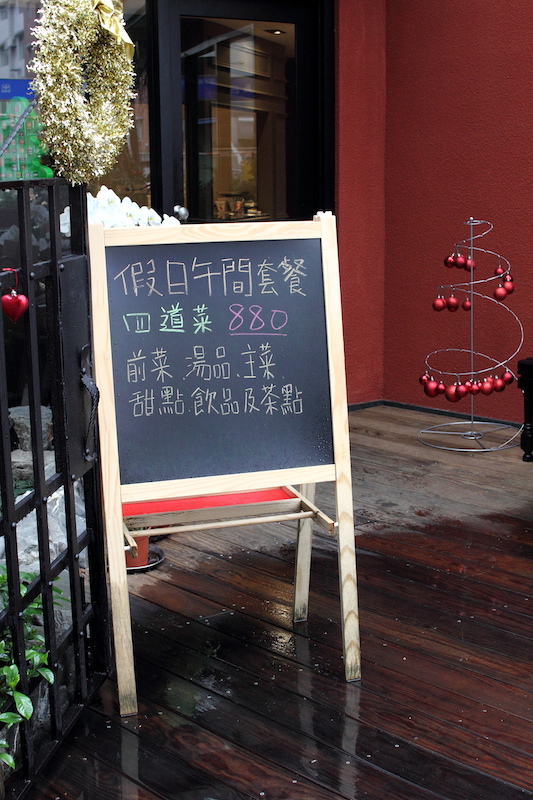 假日午間套餐
四道菜 880
前菜.湯品.主菜.
甜點.飲品及茶點